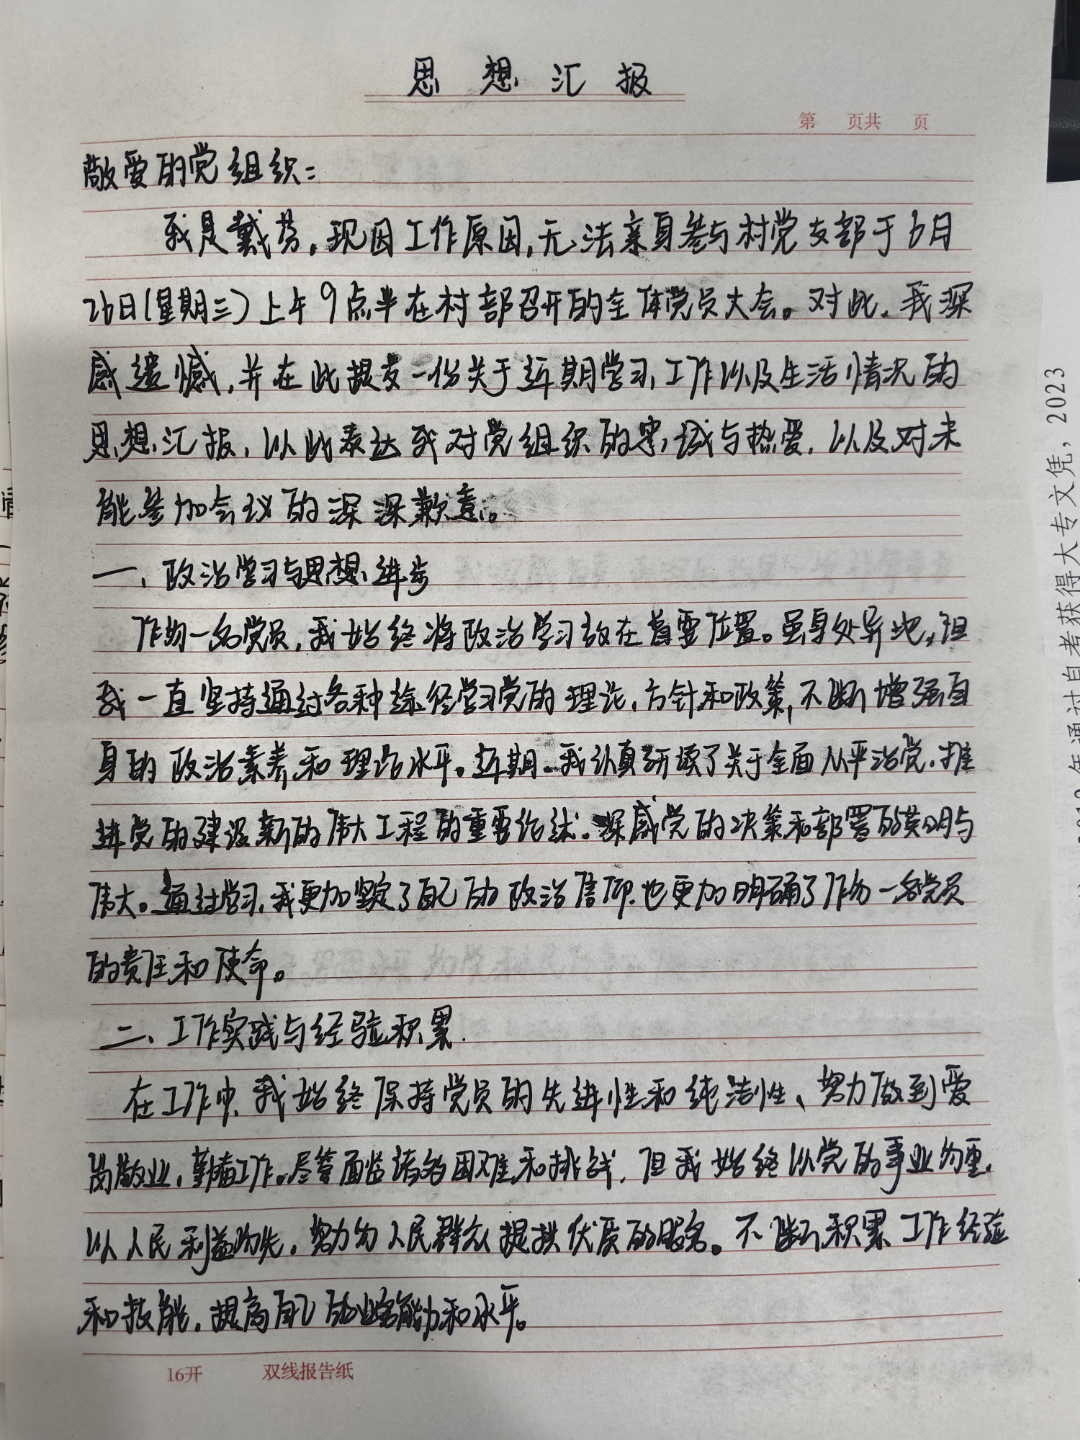 思想汇报
第 页共 页
敬爱的党组织：
我是戴芬，现因工作原因，无法亲自参与村党支部于6月
26日（星期三）上午9点半在村部召开的全体党员大会。对此，我深
感遗憾，并在此提交一份关于近期学习，工作以及生活情况的
思想汇报，以此表达我对党组织的忠诚与热爱，以及对未
能参加会议的深深歉意。
一、政治学习与思想进步
作为一名党员，我始终将政治学习放在首要位置。虽身处异地，但
我一直坚持通过各种途径学习党的理论，方针和政策，不断增强自
身的政治素养和理论水平。近期，我认真研读了关于全面从严治党，推
进党的建设新的伟大工程的重要论述，深感党的决策和部署的英明与
伟大。通过学习，我更加坚定了自己的政治信仰，也更加明确了作为一名党员
的责任和使命。
二、工作实践与经验积累
在工作中，我始终保持党员的先进性和纯洁性、努力做到爱
岗敬业，勤奋工作。尽管面临诸多困难和挑战，但我始终以党的事业为重，
以人民利益为先，努力为人民群众提供优质的服务。不断积累工作经验
和技能，提高自己的业务能力和水平。
16开 双线报告纸
年通过自考获得大专文凭，2023